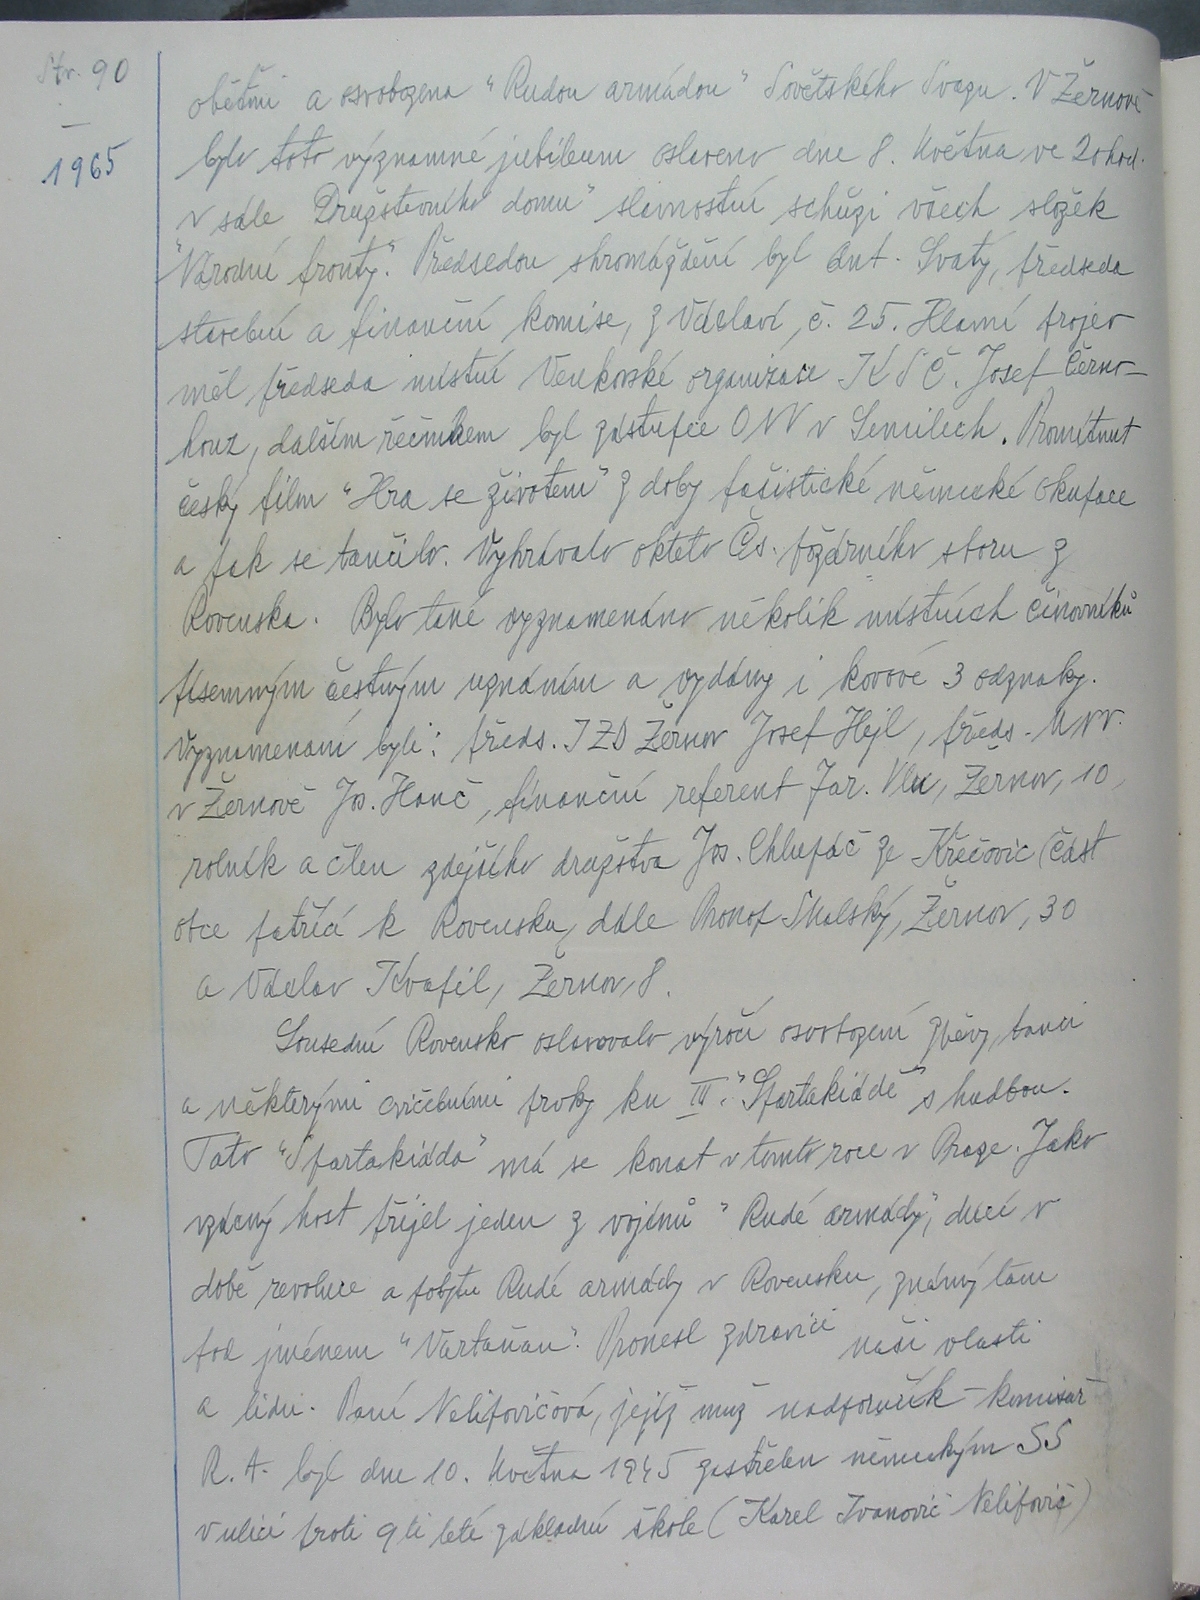 Str. 90
1965
oběťmi a osvobozena "Rudou armádou" Sovětského Svazu. V Žernově
bylo toto významné jubileum oslaveno dne 8. května ve 20 hod.
v sále Družstevního domu" slavnostní schůzi všech složek
"Národní fronty". Předsedou shromáždění byl Ant. Svatý, předseda
stavební a finanční komise, z Václaví, č. 25. Hlavní projev
měl předseda místní Venkovské organizace KSČ. Josef Černo-
houz, dalším řečníkem byl zástupce ONV v Semilech. Promítnut
český film "Hra se životem" z doby fašistické německé okupace
a pak se tančilo. Vyhrávalo okteto Čs. požárního sboru z
Rovenska. Bylo také vyznamenáno několik místních činovníků
písemným čestným uznáním a vydány i kovové 3 odznaky.
Vyznamenaní byli: předs. JZD Žernov Josef Hejl, předs. MNV.
v Žernově Jos. Hanč, finanční referent Jar. Vlk, Žernov, 10,
rolník a člen zdejšího družstva Jos. Chlupáč ze Křečovic (část
obce patřící k Rovensku, dále Prokop Skalský, Žernov, 30
a Václav Kvapil, Žernov, 8.
Sousední Rovensko oslavovalo výročí osvobození zpěvy, tanci
a některými cvičebními prvky ku III. "Spartakiádě" s hudbou.
Tato "Spartakiáda" má se konat v tomto roce v Praze. Jako
vzácný host přijel jeden z vojínů "Rudé armády", dlící v
době revoluce a pobytu Rudé armády v Rovensku, známý tam
pod jménem "Vartaňan". Pronesl zdravici naší vlasti
a lidu. Paní Nelipovičová, jejíž muž nadporučík - komisař
R. A. byl dne 10. května 1945 zastřelen německým SS
v ulici proti 9ti leté základní škole (Karel Ivanovič Nelipovič)